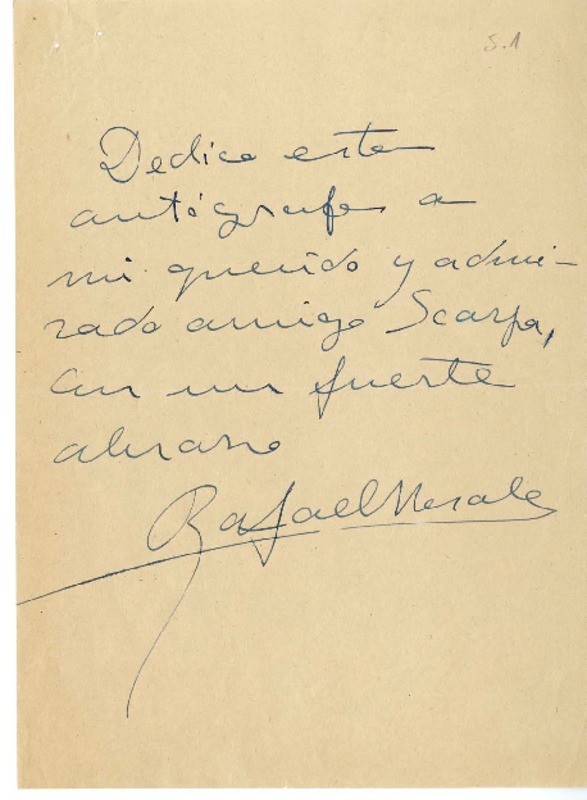 S.1
Dedico este
autógrafo a
mi querido y admi-
rado amigo Scarpa,
con un fuerte
abrazo
Rafael Morales